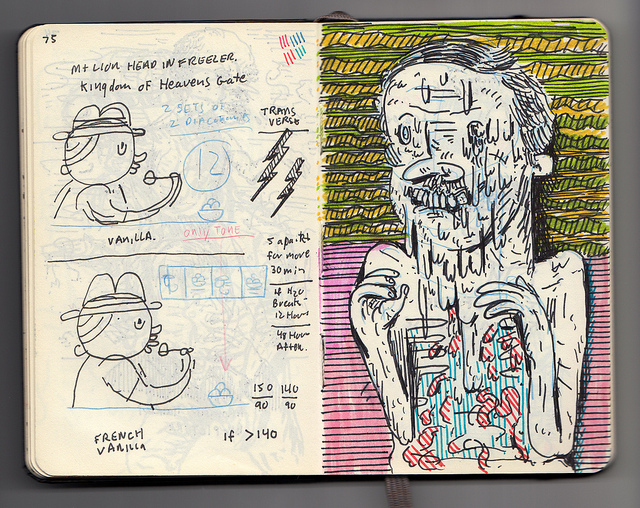 75
Mt LION HEAD IN FREEZER.
Kingdom of Heavens Gate
2 SETS OF
2 DIAGONALS
TRANS
VERSE
12
VANILLA.
ONLY TONE
30 min
4 H2O
Breaks
12 Hours
48 Hour
After.
150 140
90 90
FRENCH
VANILLA
if >140